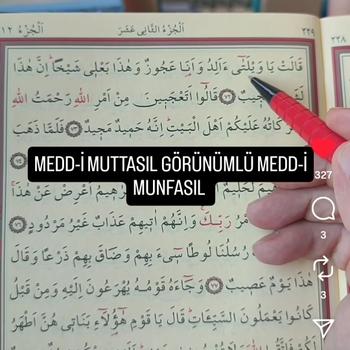 اَلْجُزْءُ ١٢ اَلْجُزْءُ الثَّانِى عَشَرَ ٢٢٩ ٢٢٨
قَالَتْ يَا وَيْلَتٰٓى ءَاَلِدُ وَاَنَا۬ عَجُوزٌ وَهٰذَا بَعْلٖى شَيْخًا اِنَّ هٰذَا
قَالُٓوا اَتَعْجَبٖينَ مِنْ اَمْرِ اللّٰهِ رَحْمَتُ اللّٰهِ
عَلَيْكُمْ اَهْلَ الْبَيْتِ اِنَّهُ حَمٖيدٌ مَجٖيدٌ ٧٣ فَلَمَّا ذَهَبَ
MEDD-İ MUTTASIL GÖRÜNÜMLÜ MEDD-İ
MUNFASIL
لَحَلٖيمٌ اَعْرِضْ عَنْ هٰذَا
رَبِّكَ وَاِنَّهُمْ اٰتٖيهِمْ عَذَابٌ غَيْرُ مَرْدُودٍ ٧٦
رُسُلُنَا لُوطًا سٖٓىءَ بِهِمْ وَضَاقَ بِهِمْ ذَرْعًا وَقَالَ
هٰذَا يَوْمٌ عَصٖيبٌ ٧٧ وَجَٓاءَهُ قَوْمُهُ يُهْرَعُونَ اِلَيْهِ وَمِنْ قَبْلُ
كَانُوا يَعْمَلُونَ السَّيِّـَٔاتِ قَالَ يَا قَوْمِ هٰٓؤُ۬لَٓاءِ بَنَاتٖى هُنَّ اَطْهَرُ
327
3
3